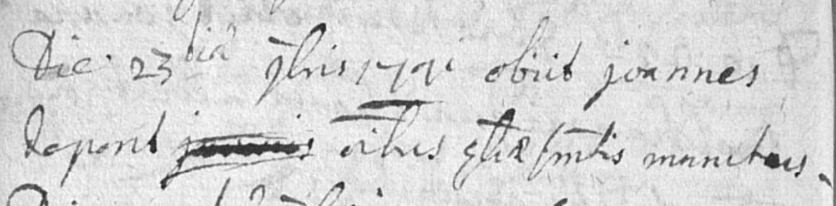 Die 23tia 9bris 1791 obiit joannes
dopont oibus sm̄tis munitus